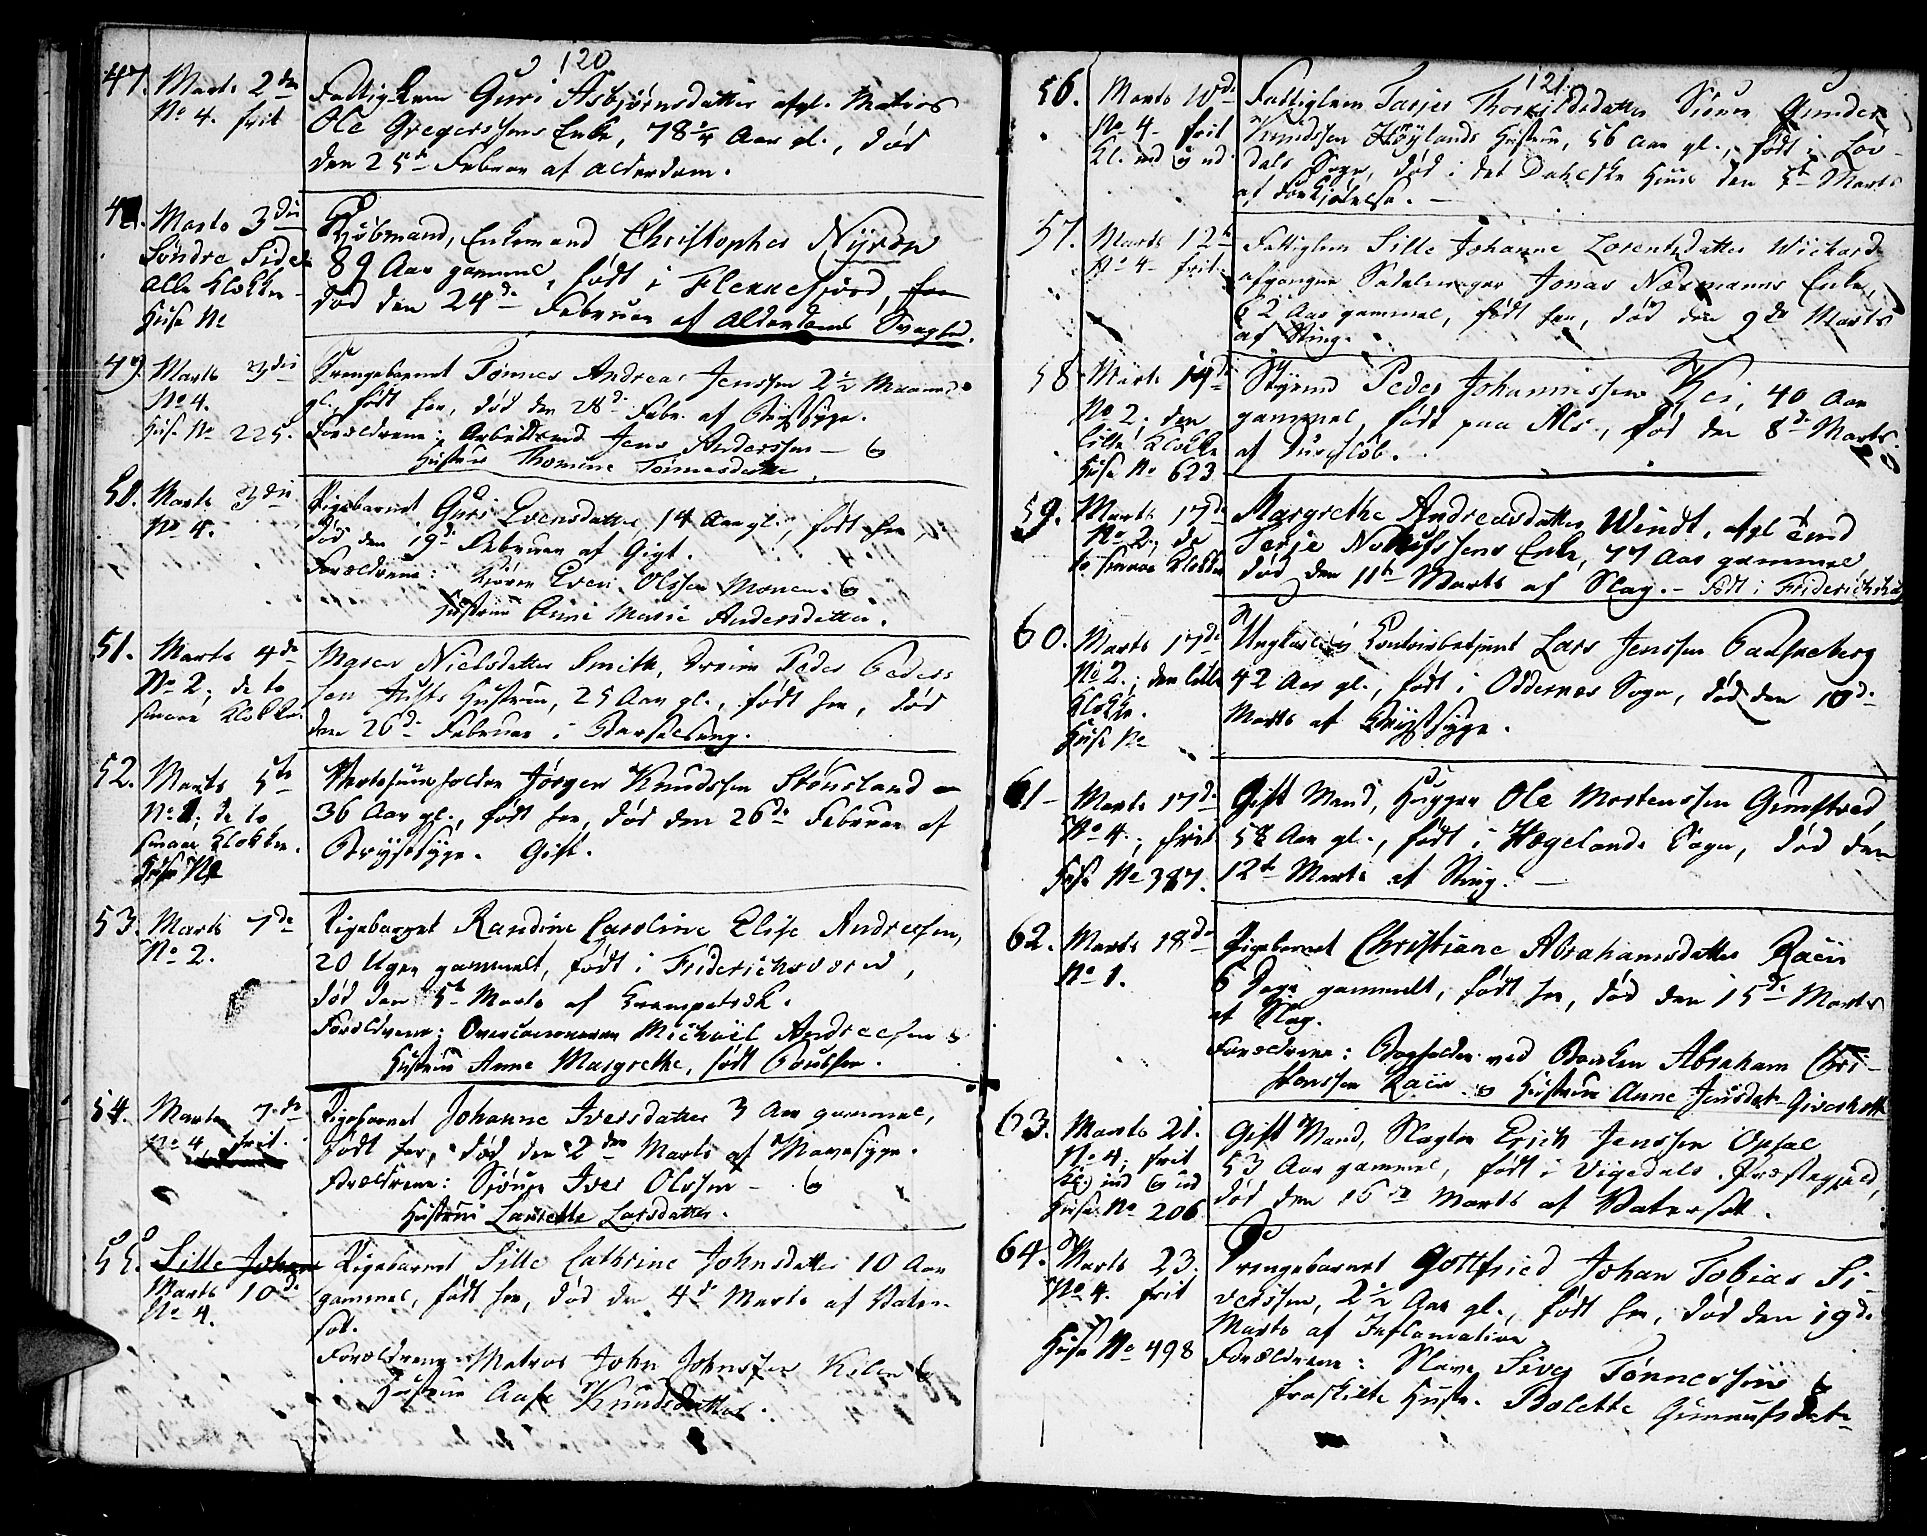 120
47. Marts 2den
No 4. frit
Fattiglem Guri Asbjørnsdatter afgl. Matros
Ole Gregerssens Enke, 78 3/4 Aar gl., død
den 25de Februar af Alderdom.
48. Marts 3die
Søndre Side
alle Klokker
Huse No
Kjøbmand, Enkemand Christopher Nyrow
89 Aar gammel, født i Flekkefjord,
død den 24de Februar af Alderdoms Svaghed.
49. Marts 3die
No 4.
Huse No 225.
Drengebarnet Tønnes Andreas Jenssen 2 1/2 Maaned
gl., født her, død den 28de Febr. af Brystsyge.
Forældrene: Arbeidsmd Jens Anderssen – &
Hustru Thomine Tønnesdatter.
50. Marts 3die
No 4.
Pigebarnet Guri Evensdatter 14 Aar gl., født her
død den 19de Februar af Gigt.
Forældrene: Even Olssen Monen &
Hustru Anne Marie Andersdatter.
51. Marts 4de
No 2, de to
smaae Klokker.
Maren Nielsdatter Smith, Peder Peders-
sen Justs Hustru, 25 Aar gl., født her, død
den 26de Februar i Barselseng.
52. Marts 5te
No 1, de to
smaae Klokker.
Huse No
Vertshuusholder Jørgen Knudssen Stousland
36 Aar gl., født her, død den 26de Februar af
Brystsyge. Gift.
53. Marts 7de
No 2.
Pigebarnet Randine Caroline Elise Andressen,
20 Uger gammelt, født i Friderichsværn,
død den 5te Marts af Krampetræk.
Forældrene: Michael Andreasen &
Hustru Anne Margrethe, født Poulsen.
54. Marts 7de
No 4 frit.
Pigebarnet Johanne Iversdatter 3 Aar gammel,
født her, død den 2den Marts af Mavesyge.
Forældrene: Sjouer Iver Olssen – &
Hustru Laurette Larsdatter.
55. Sille Johan
Marts 10de
No 4.
Pigebarnet Sille Cathrine Johnsdatter 10 Aar
gammel, født her, død den 4de Marts af Vater-
sot.
Forældrene: Matros John Johnssen Kilen &
Hustrue Aase Knudsdatter.
121.
56. Marts 10de
No 4 frit
Kl. ind og ud.
Fattiglem Tarjer Thorkildsdatter Sjouer Gunder
Knudssen Høylands Hustru, 56 Aar gl., født i Lov-
dals Sogn, død i det Dahlske Huus den 5te Marts
af Forkjølelse.
57. Marts 12te
No 4 frit.
Fattiglem Sille Johanne Lorentzdatter Wickard
afgangne Sadelmager Jonas Næsmanns Enke,
62 Aar gammel, født her, død den 9de Marts
af Sting.
58 Marts 14de
No 2, den
lille Klokke
Huse No 623
Styrmd Peder Johannissen Kei, 40 Aar
gammel, født paa Als, død den 8de Marts
af Duseløb.
59. Marts 17de
No 2, de
to smaae Klokker
Margrethe Andreasdatter Windt, afgl.
Terje Enke, 77 Aar gammel
død den 11te Marts af Slag. – Født i Friderichshald
60. Marts 17de
No 2., den lille
Klokke.
Huse No
Ungkarl, Lars Jenssen
42 Aar gl., født i Oddernes Sogn, død den 10de
Marts af Brystsyge.
61 – Marts 17de
No 4., frit
Huse No 387.
Gift Mand, Hugger Ole Mortenssen Gimstved,
58 Aar gl., født i Hægelands Sogn, død den
12te Marts af Sting. –
62. Marts 18de
No 1.
Pigebarnet Christiane Abrahamsdatter
6 Dage gammelt, født her, død den 15de Marts
af Slag.
Forældrene: Bogholder ved Banken Abraham Chri-
stenssen & Hustrue Anne Jensdat. Giverholt
63. Marts 21.
No 4, frit
Kl. ind & ud
Huse No 206
Gift Mand, Slagter Erich Jenssen Opsal
53 Aar gammel, født i Vigedals Præstegjeld,
død den 16de Marts af Vatersot.
64. Marts 23.
No 4. frit
Huse No 498
Drengebarnet Gottfried Johan Tobias Si-
verssen, 2 1/2 Aar gl., født her, død den 19de
Marts af Inflamation
Forældrene: Slave Siver Tønnessen &
fraskilte Hustr. Bolette Gunnufsdat.